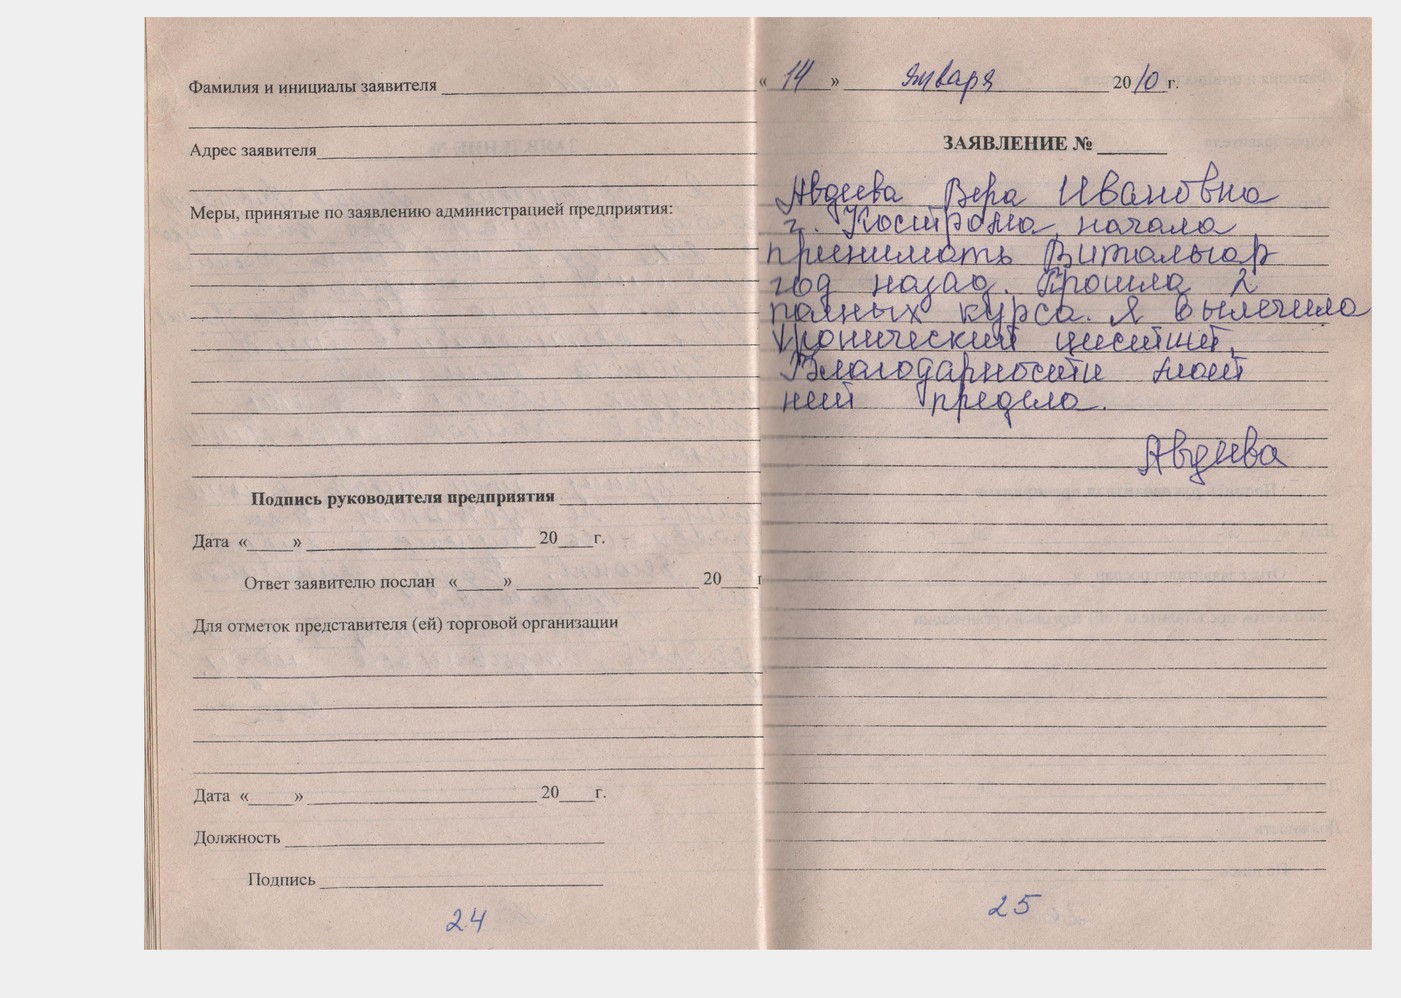 Фамилия и инициалы заявителя
Адрес заявителя
Меры, принятые по заявлению администрацией предприятия:
Подпись руководителя предприятия
Дата «____» ____ 20___г.
Ответ заявителю послан «____» ____ 20___г
Для отметок представителя (ей) торговой организации
Дата «____» ____ 20___г.
Должность
Подпись
24
« 14 » января 2010 г.
ЗАЯВЛЕНИЕ №
Авдеева Вера Ивановна
г. Кострома, начала
принимать Витальгар
год назад. Прошла 2
полных курса. Я вылечила
хронический цистит.
Благодарности моей
нет предела.
Авдеева
25